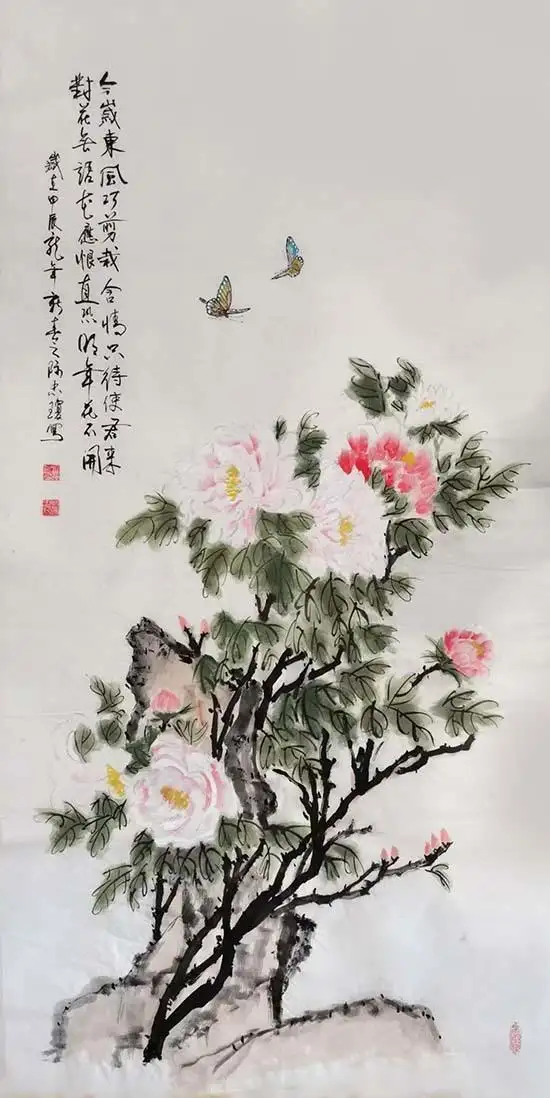 今歲東風巧剪裁含情只待使君來
對花無語花應恨直恐明年花不開
歲在甲辰龍年新春之際忠瓊寫